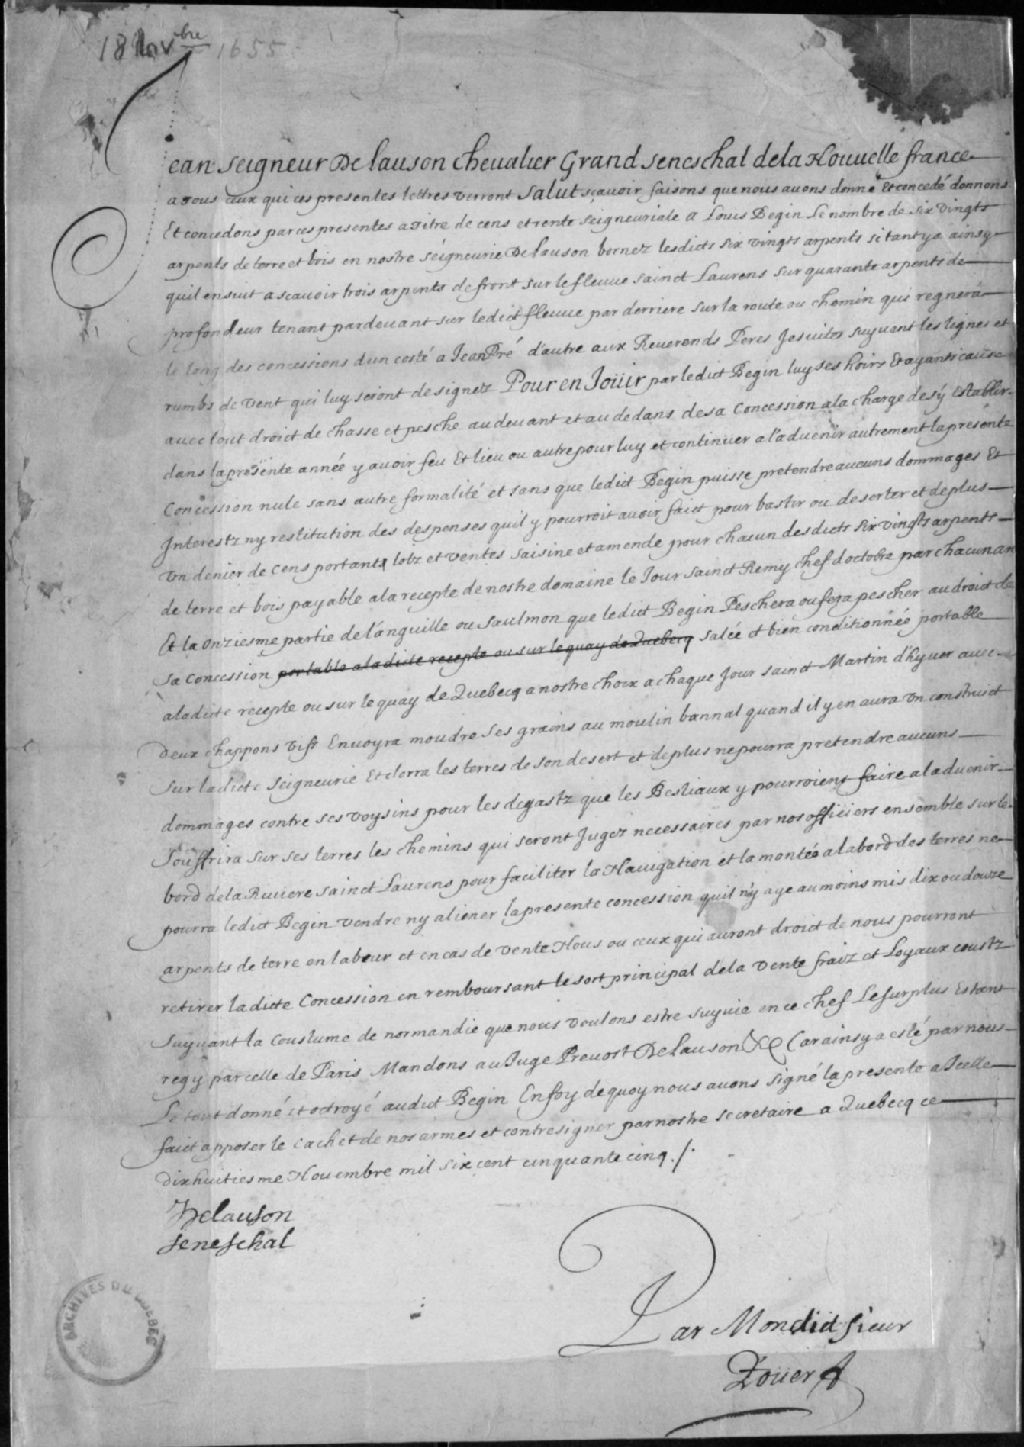 18 Nov.bre 1655
Jean Seigneur De Lauson Chevalier Grand Seneschal dela Nouvelle france
a tous ceux qui ces presentes lettres verront Salut sçavoir faisons que nous avons donné et concedé donnons
Et concedons par ces presentes a titre de cens et rente seigneuriale a Louis Begin Le nombre de six vingts
arpents de terre et bois en nostre seigneurie De Lauson bornez lesdicts six vingts arpents si tant y a ainsy
quil ensuit a scavoir trois arpents de front sur le fleuve sainct Laurens sur quarante arpents de
profondeur tenant pardevant sur ledict fleuve par derriere sur la route ou chemin qui regnera
le long des concessions dun costé a Jean Pré d'autre aux Reverends Peres Jesuites suyvant les lignes et
rumbs de vent qui luy seront designez Pour en Joüir par ledict Begin luy ses hoirs et ayants cause
avec tout droict de chasse et pesche au devant et au dedans de sa Concession a la charge de s'y Establir
dans la presente année y avoir feu Et lieu ou autre pour luy et continuer a l'advenir autrement la presente
Concession nule sans autre formalité et sans que ledict Begin puisse pretendre aucuns dommages Et
Interestz ny restitution des despenses quil y pourroit avoir faict pour bastir ou deserter et de plus
Un denier de Cens portants lotz et ventes saisine et amende pour chacun desdicts six vingts arpents
de terre et bois payable a la recepte de nostre domaine le Jour sainct Remy chef doctobre par chacun an
Et la onziesme partie de l'anguille ou Saulmon que ledict Begin Peschera ou fera pescher au droict de
sa Concession portable a ladicte recepte ou sur le quay de Quebecq salée et bien conditionnée portable
a ladicte recepte ou sur le quay de Quebecq a nostre choix a chaque Jour sainct Martin d'hyver avec
deux chappons vifs Envoyra moudre ses grains au moulin bannal quand il y en aura un construict
sur ladicte Seigneurie Et clorra les terres de son desert et de plus ne pourra pretendre aucuns
dommages contre ses voysins pour les degastz que les Bestiaux y pourroient faire a ladvenir
Souffrira sur ses terres les chemins qui seront Jugez necessaires par nos officiers ensemble sur le
bord de la Riviere sainct Laurens pour faciliter la Navigation et la montée a labord des terres ne
pourra ledict Begin vendre ny aliener la presente concession quil n'y aye au moins mis dix ou douze
arpents de terre en labeur et en cas de vente Nous ou ceux qui auront droict de nous pourront
retirer ladicte Concession en remboursant le sort principal de la vente fraiz et Loyaux coustz
suyvant la Coustume de normandie que nous voulons estre suyvie en ce chef Le surplus Estant
regy par celle de Paris Mandons au Juge Prevost De Lauson &c Car ainsy a esté par nous
Le tout donné et octroyé audict Begin En foy de quoy nous avons signé la presente a Icelle
faict apposer le cachet de nos armes et contresigner par nostre secretaire a Quebecq ce
dixhuitiesme Novembre mil six cent cinquante cinq ./.
Delauson
Seneschal
Par Mondict Sieur
Roüer
ARCHIVES DU QUÉBEC